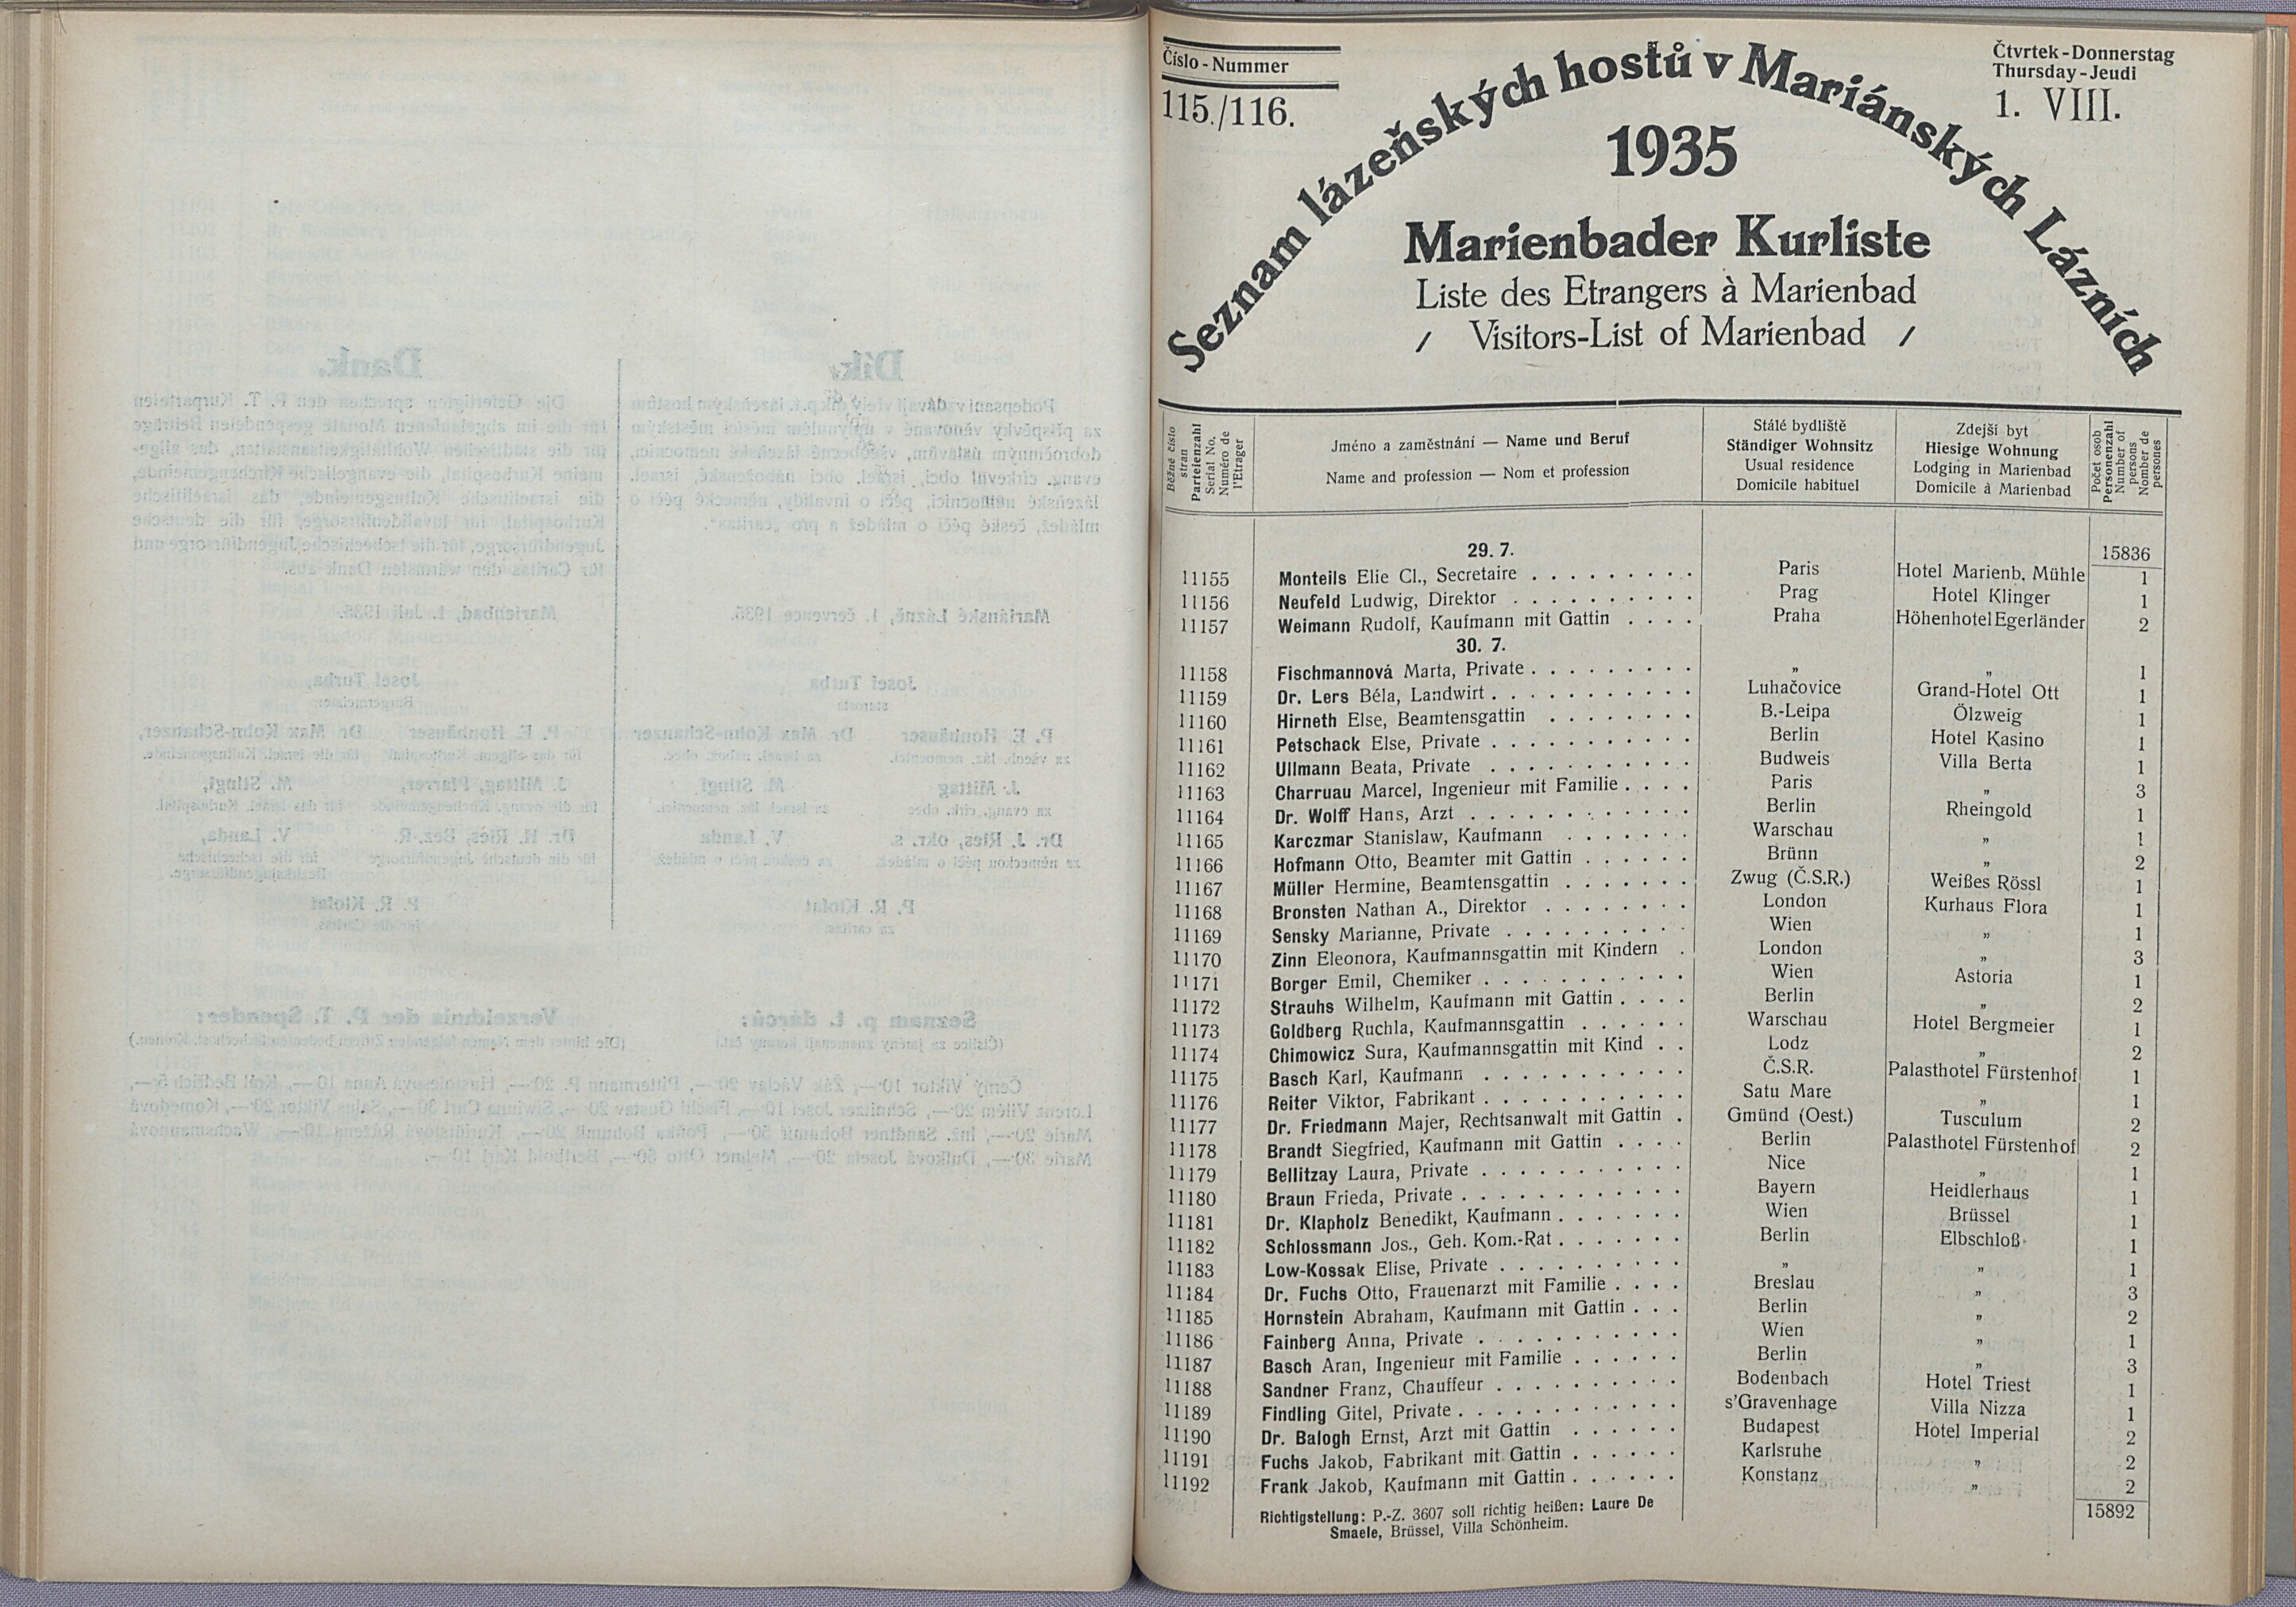 Číslo - Nummer
115./116.
Čtvrtek - Donnerstag
Thursday - Jeudi
1. VIII.
Seznam lázeňských hostů v Mariánských Lázních
1935
Marienbader Kurliste
Liste des Etrangers à Marienbad
/ Visitors-List of Marienbad /
Běžné číslo stran
Parteienzahl
Serial No.
Numéro de l'Etrager
Jméno a zaměstnání — Name und Beruf
Name and profession — Nom et profession
Stálé bydliště
Ständiger Wohnsitz
Usual residence
Domicile habituel
Zdejší byt
Hiesige Wohnung
Lodging in Marienbad
Domicile à Marienbad
Počet osob
Personenzahl
Number of persons
Nomber de persones
29. 7. 15836
11155 Monteils Elie Cl., Secretaire . . . . . . . . . Paris Hotel Marienb. Mühle 1
11156 Neufeld Ludwig, Direktor . . . . . . . . . . Prag Hotel Klinger 1
11157 Weimann Rudolf, Kaufmann mit Gattin . . . . Praha Höhenhotel Egerländer 2
30. 7.
11158 Fischmannová Marta, Private . . . . . . . . . „ „ 1
11159 Dr. Lers Béla, Landwirt . . . . . . . . . . . Luhačovice Grand-Hotel Ott 1
11160 Hirneth Else, Beamtensgattin . . . . . . . . B.-Leipa Ölzweig 1
11161 Petschack Else, Private . . . . . . . . . . . Berlin Hotel Kasino 1
11162 Ullmann Beata, Private . . . . . . . . . . . Budweis Villa Berta 1
11163 Charruau Marcel, Ingenieur mit Familie . . . . Paris „ 3
11164 Dr. Wolff Hans, Arzt . . . . . . . . . . . . Berlin Rheingold 1
11165 Karczmar Stanislaw, Kaufmann . . . . . . . Warschau „ 1
11166 Hofmann Otto, Beamter mit Gattin . . . . . . Brünn „ 2
11167 Müller Hermine, Beamtensgattin . . . . . . . Zwug (Č.S.R.) Weißes Rössl 1
11168 Bronsten Nathan A., Direktor . . . . . . . . London Kurhaus Flora 1
11169 Sensky Marianne, Private . . . . . . . . . . Wien „ 1
11170 Zinn Eleonora, Kaufmannsgattin mit Kindern . London „ 3
11171 Borger Emil, Chemiker . . . . . . . . . . . Wien Astoria 1
11172 Strauhs Wilhelm, Kaufmann mit Gattin . . . . Berlin „ 2
11173 Goldberg Ruchla, Kaufmannsgattin . . . . . . Warschau Hotel Bergmeier 1
11174 Chimowicz Sura, Kaufmannsgattin mit Kind . . Lodz „ 2
11175 Basch Karl, Kaufmann . . . . . . . . . . . Č.S.R. Palasthotel Fürstenhof 1
11176 Reiter Viktor, Fabrikant . . . . . . . . . . . Satu Mare „ 1
11177 Dr. Friedmann Majer, Rechtsanwalt mit Gattin . Gmünd (Oest.) Tusculum 2
11178 Brandt Siegfried, Kaufmann mit Gattin . . . . Berlin Palasthotel Fürstenhof 2
11179 Bellitzay Laura, Private . . . . . . . . . . . Nice „ 1
11180 Braun Frieda, Private . . . . . . . . . . . . Bayern Heidlerhaus 1
11181 Dr. Klapholz Benedikt, Kaufmann . . . . . . . Wien Brüssel 1
11182 Schlossmann Jos., Geh. Kom.-Rat . . . . . . . Berlin Elbschloß 1
11183 Low-Kossak Elise, Private . . . . . . . . . . „ „ 1
11184 Dr. Fuchs Otto, Frauenarzt mit Familie . . . . Breslau „ 3
11185 Hornstein Abraham, Kaufmann mit Gattin . . . Berlin „ 2
11186 Fainberg Anna, Private . . . . . . . . . . . Wien „ 1
11187 Basch Aran, Ingenieur mit Familie . . . . . . Berlin „ 3
11188 Sandner Franz, Chauffeur . . . . . . . . . . Bodenbach Hotel Triest 1
11189 Findling Gitel, Private . . . . . . . . . . . . s'Gravenhage Villa Nizza 1
11190 Dr. Balogh Ernst, Arzt mit Gattin . . . . . . Budapest Hotel Imperial 2
11191 Fuchs Jakob, Fabrikant mit Gattin . . . . . . Karlsruhe „ 2
11192 Frank Jakob, Kaufmann mit Gattin . . . . . . Konstanz „ 2
Richtigstellung: P.-Z. 3607 soll richtig heißen: Laure De
Smaele, Brüssel, Villa Schönheim.
15892